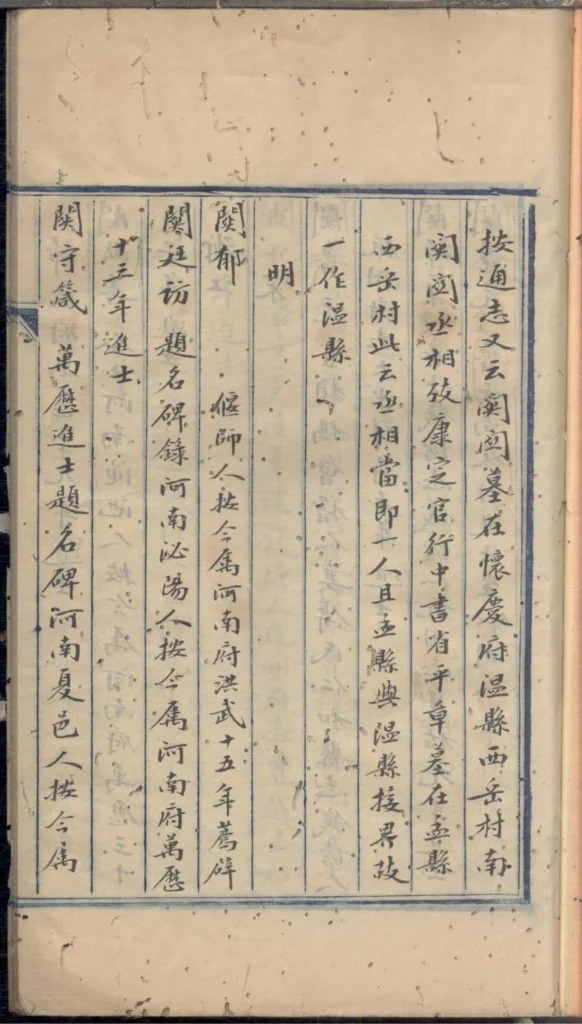 按通志又云闕闕墓在懷慶府温縣西岳村南
闕闕丞相攷康定官行中書省平章墓在孟縣
西岳村此云丞相當即一人且孟縣與温縣接界故
一作温縣
明
闕郁 偃師人按今属河南府洪武十五年薦辟
闕廷訪 題名碑錄河南泌陽人按今属河南府萬歷
十三年進士
闕守箴 萬歷進士題名碑河南夏邑人按今属